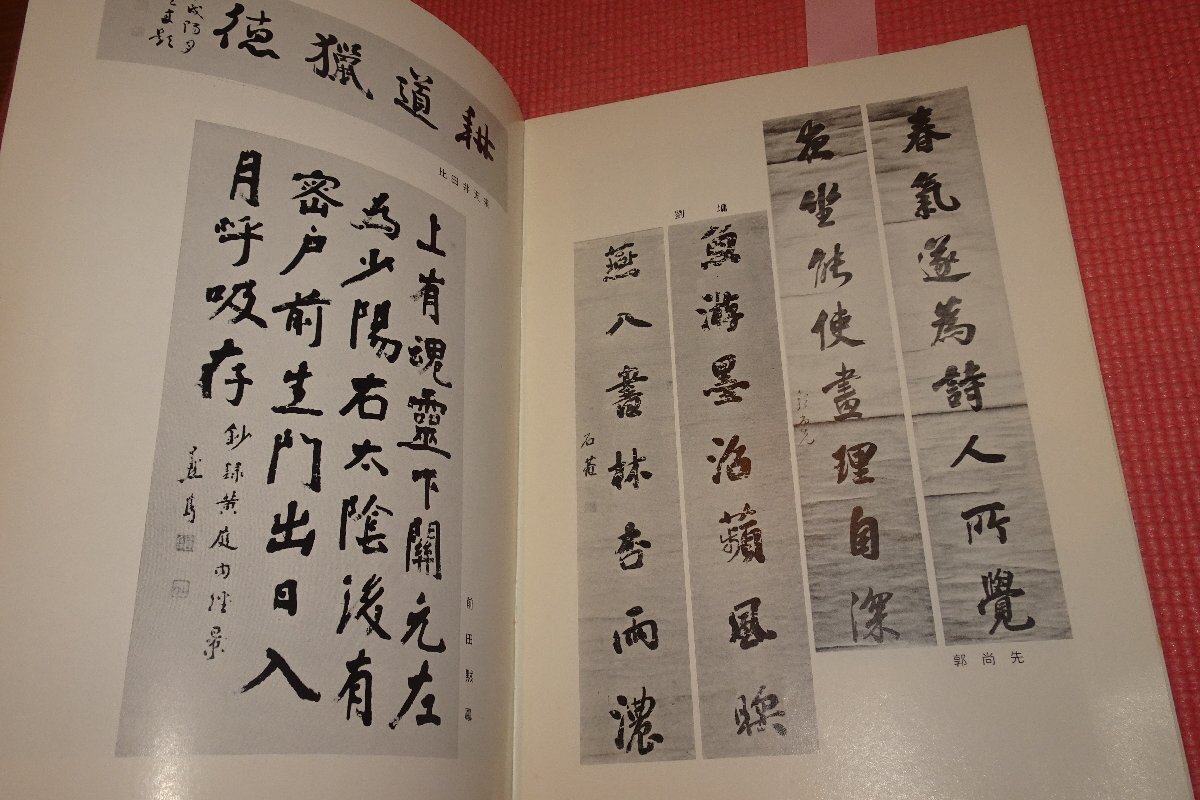 春氣遂為詩人所覺
夜坐能使畫理自深
郭尚先
劉墉
魚游墨沼蘋風暖
燕入書林杏雨濃
石菴
耕道獵德
比田井天来
上有魂靈下關元左
為少陽右太陰後有
密户前生門出日入
月呼吸存
鈔録黄庭内經景
前田黙鳳